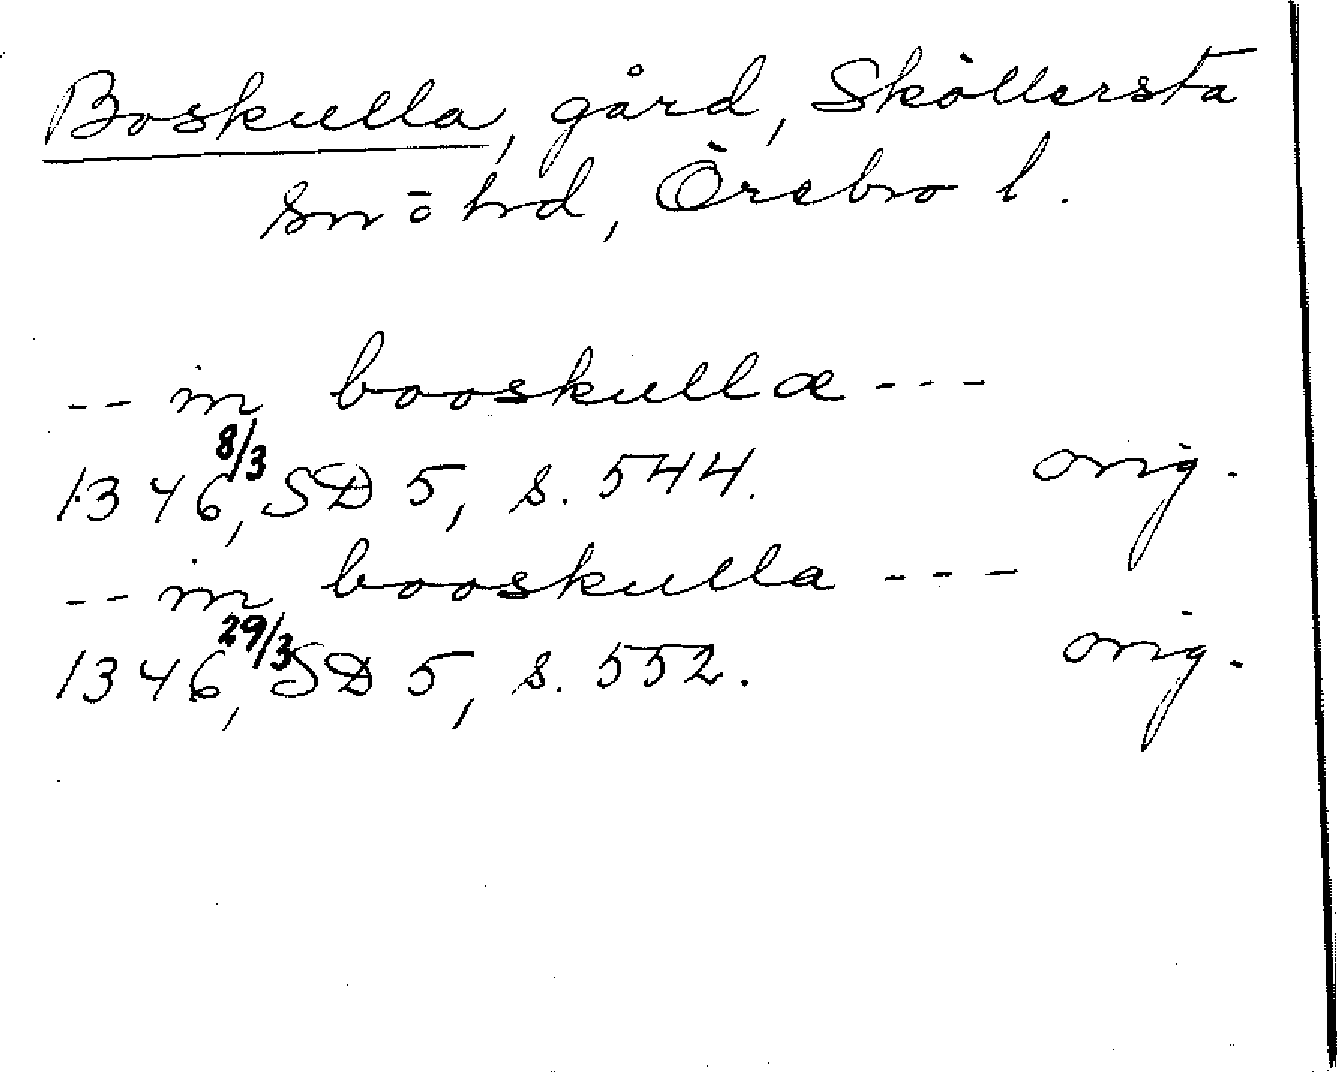 Boskulla, gård, Sköllersta
sn o hd, Örebro l.
-- in booskullæ ---
1346 8/3, SD 5, s. 544. orig.
-- in booskulla ---
1346 29/3, SD 5, s. 552. orig.